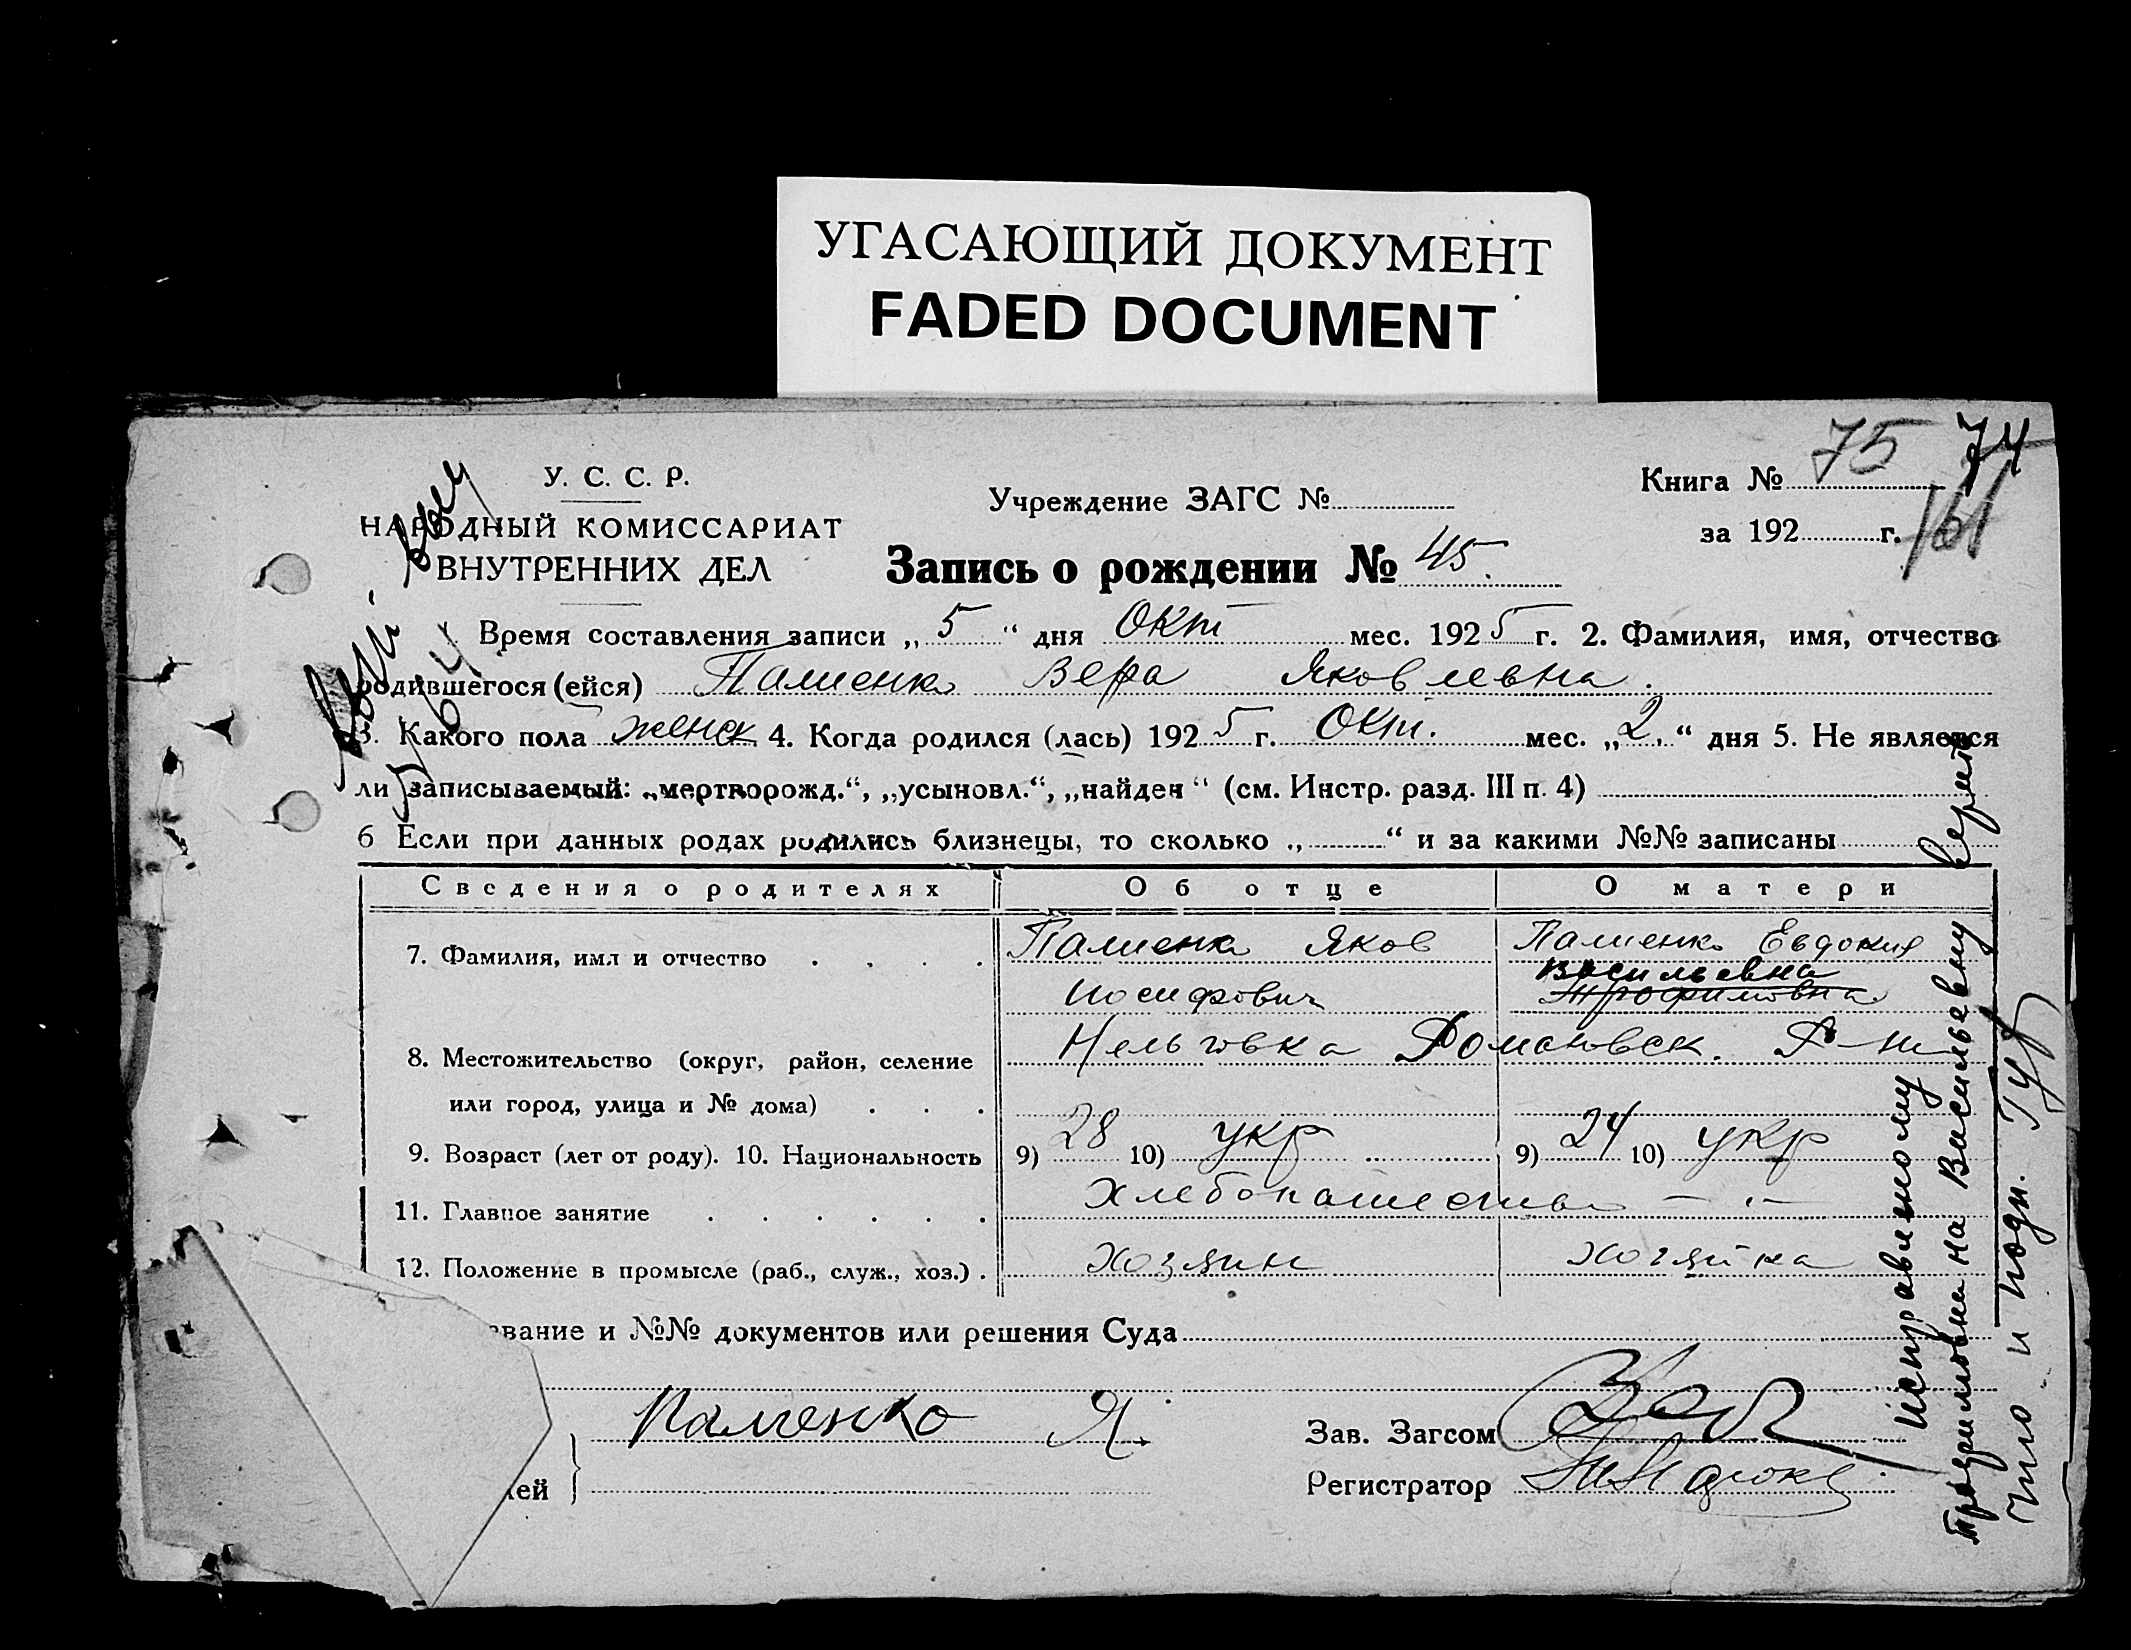 УГАСАЮЩИЙ ДОКУМЕНТ
FADED DOCUMENT
У. С. С. Р.
НАРОДНЫЙ КОМИССАРИАТ
ВНУТРЕННИХ ДЕЛ
Учреждение ЗАГС №
Книга № 75 74
за 192 г. 161
Запись о рождении № 45.
Время составления записи „ 5 “ дня Окт мес. 1925 г. 2. Фамилия, имя, отчество
родившегося (ейся) Палиенко Вера Яковлевна.
3. Какого пола женск 4. Когда родился (лась) 1925 г. Окт. мес. „ 2. “ дня 5. Не является
ли записываемый: „мертворожд.“, „усыновл.“, „найден“ (см. Инстр. разд. III п. 4)
6 Если при данных родах родились близнецы, то сколько „ “ и за какими №№ записаны
Сведения о родителях Об отце О матери
7. Фамилия, имя и отчество Палиенко Яков Палиенко Евдокия
Васильевна
Иосифович Трофимовна
8. Местожительство (округ, район, селение Нельговка
или город, улица и № дома)
9. Возраст (лет от роду). 10. Национальность 9) 28 10) укр 9) 24 10) укр
11. Главное занятие Хлебопашество — „ —
12. Положение в промысле (раб., служ., хоз.) хозяин хозяйка
звание и №№ документов или решения Суда
Палиенко Я.
Зав. Загсом
лей
Регистратор
Исправленному
Трофимовна на Васильевну верить